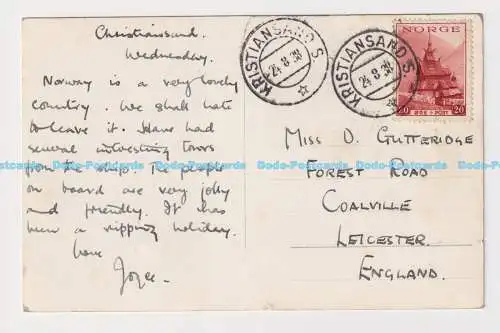 Christiansand.
Wednesday.
Norway is a very lovely
country. We shall hate
to leave it. Have had
several interesting tours
from the ship. The people
on board are very jolly
and friendly. It has
been a ripping holiday.
Love
Joyce.
KRISTIANSAND S
24-8-38
KRISTIANSAND S
24-8-38
NORGE
20 ØRE + POST 20
MISS D. GUTTERIDGE
FOREST ROAD
COALVILLE
LEICESTER.
ENGLAND.
Dodo-Postcards Dodo-Postcards Dodo-Postcards Dodo-Postcards